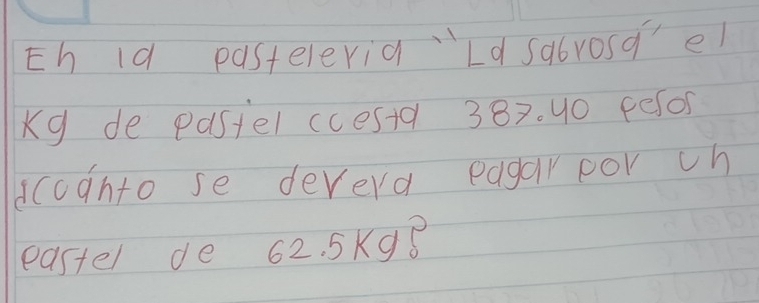 En la pasteleria "La sabrosa" el
Kg de pastel cuesta 387.40 pesos
¿cuánto se devera pagar por un
pastel de 62.5 Kg?